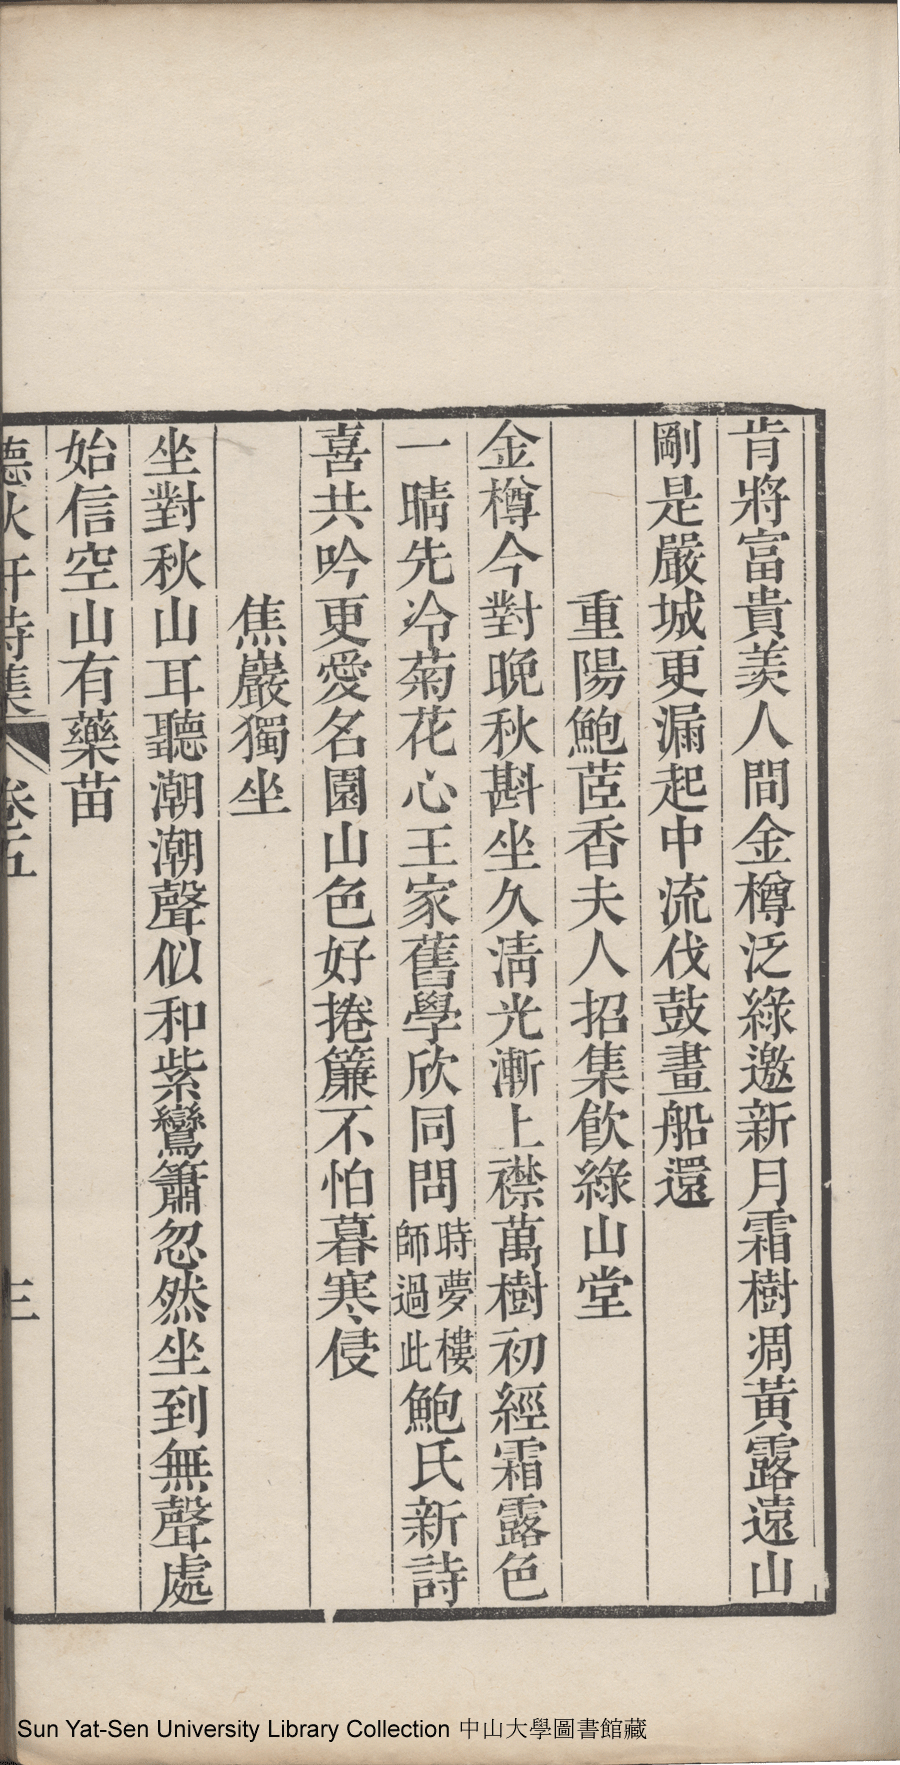 肯將富貴羨人間金樽泛綠邀新月霜樹凋黃露遠山
剛是嚴城更漏起中流伐鼓畫船還
重陽鮑茝香夫人招集飲綠山堂
金樽今對晚秋斟坐久淸光漸上襟萬樹初經霜露色
一晴先冷菊花心王家舊學欣同問時夢樓師過此鮑氏新詩
喜共吟更愛名園山色好捲簾不怕暮寒侵
焦巖獨坐
坐對秋山耳聽潮潮聲似和紫鸞簫忽然坐到無聲處
始信空山有藥苗
聽秋軒詩集 卷五 三
Sun Yat-Sen University Library Collection 中山大學圖書館藏